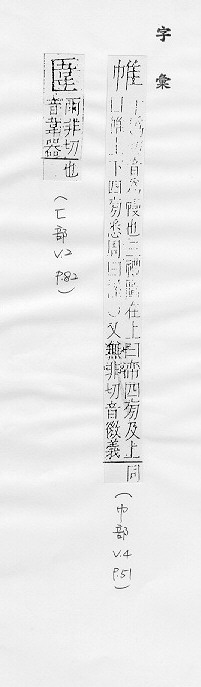 字彙
帷
切音爲幔也三禮圖在上曰帟四旁及上
曰帷上下四旁悉周曰幄○又無非切音微義
同
(巾部 V.4 P.51)
雨非切
音葦器
也
(匚部 V.2 P.82)